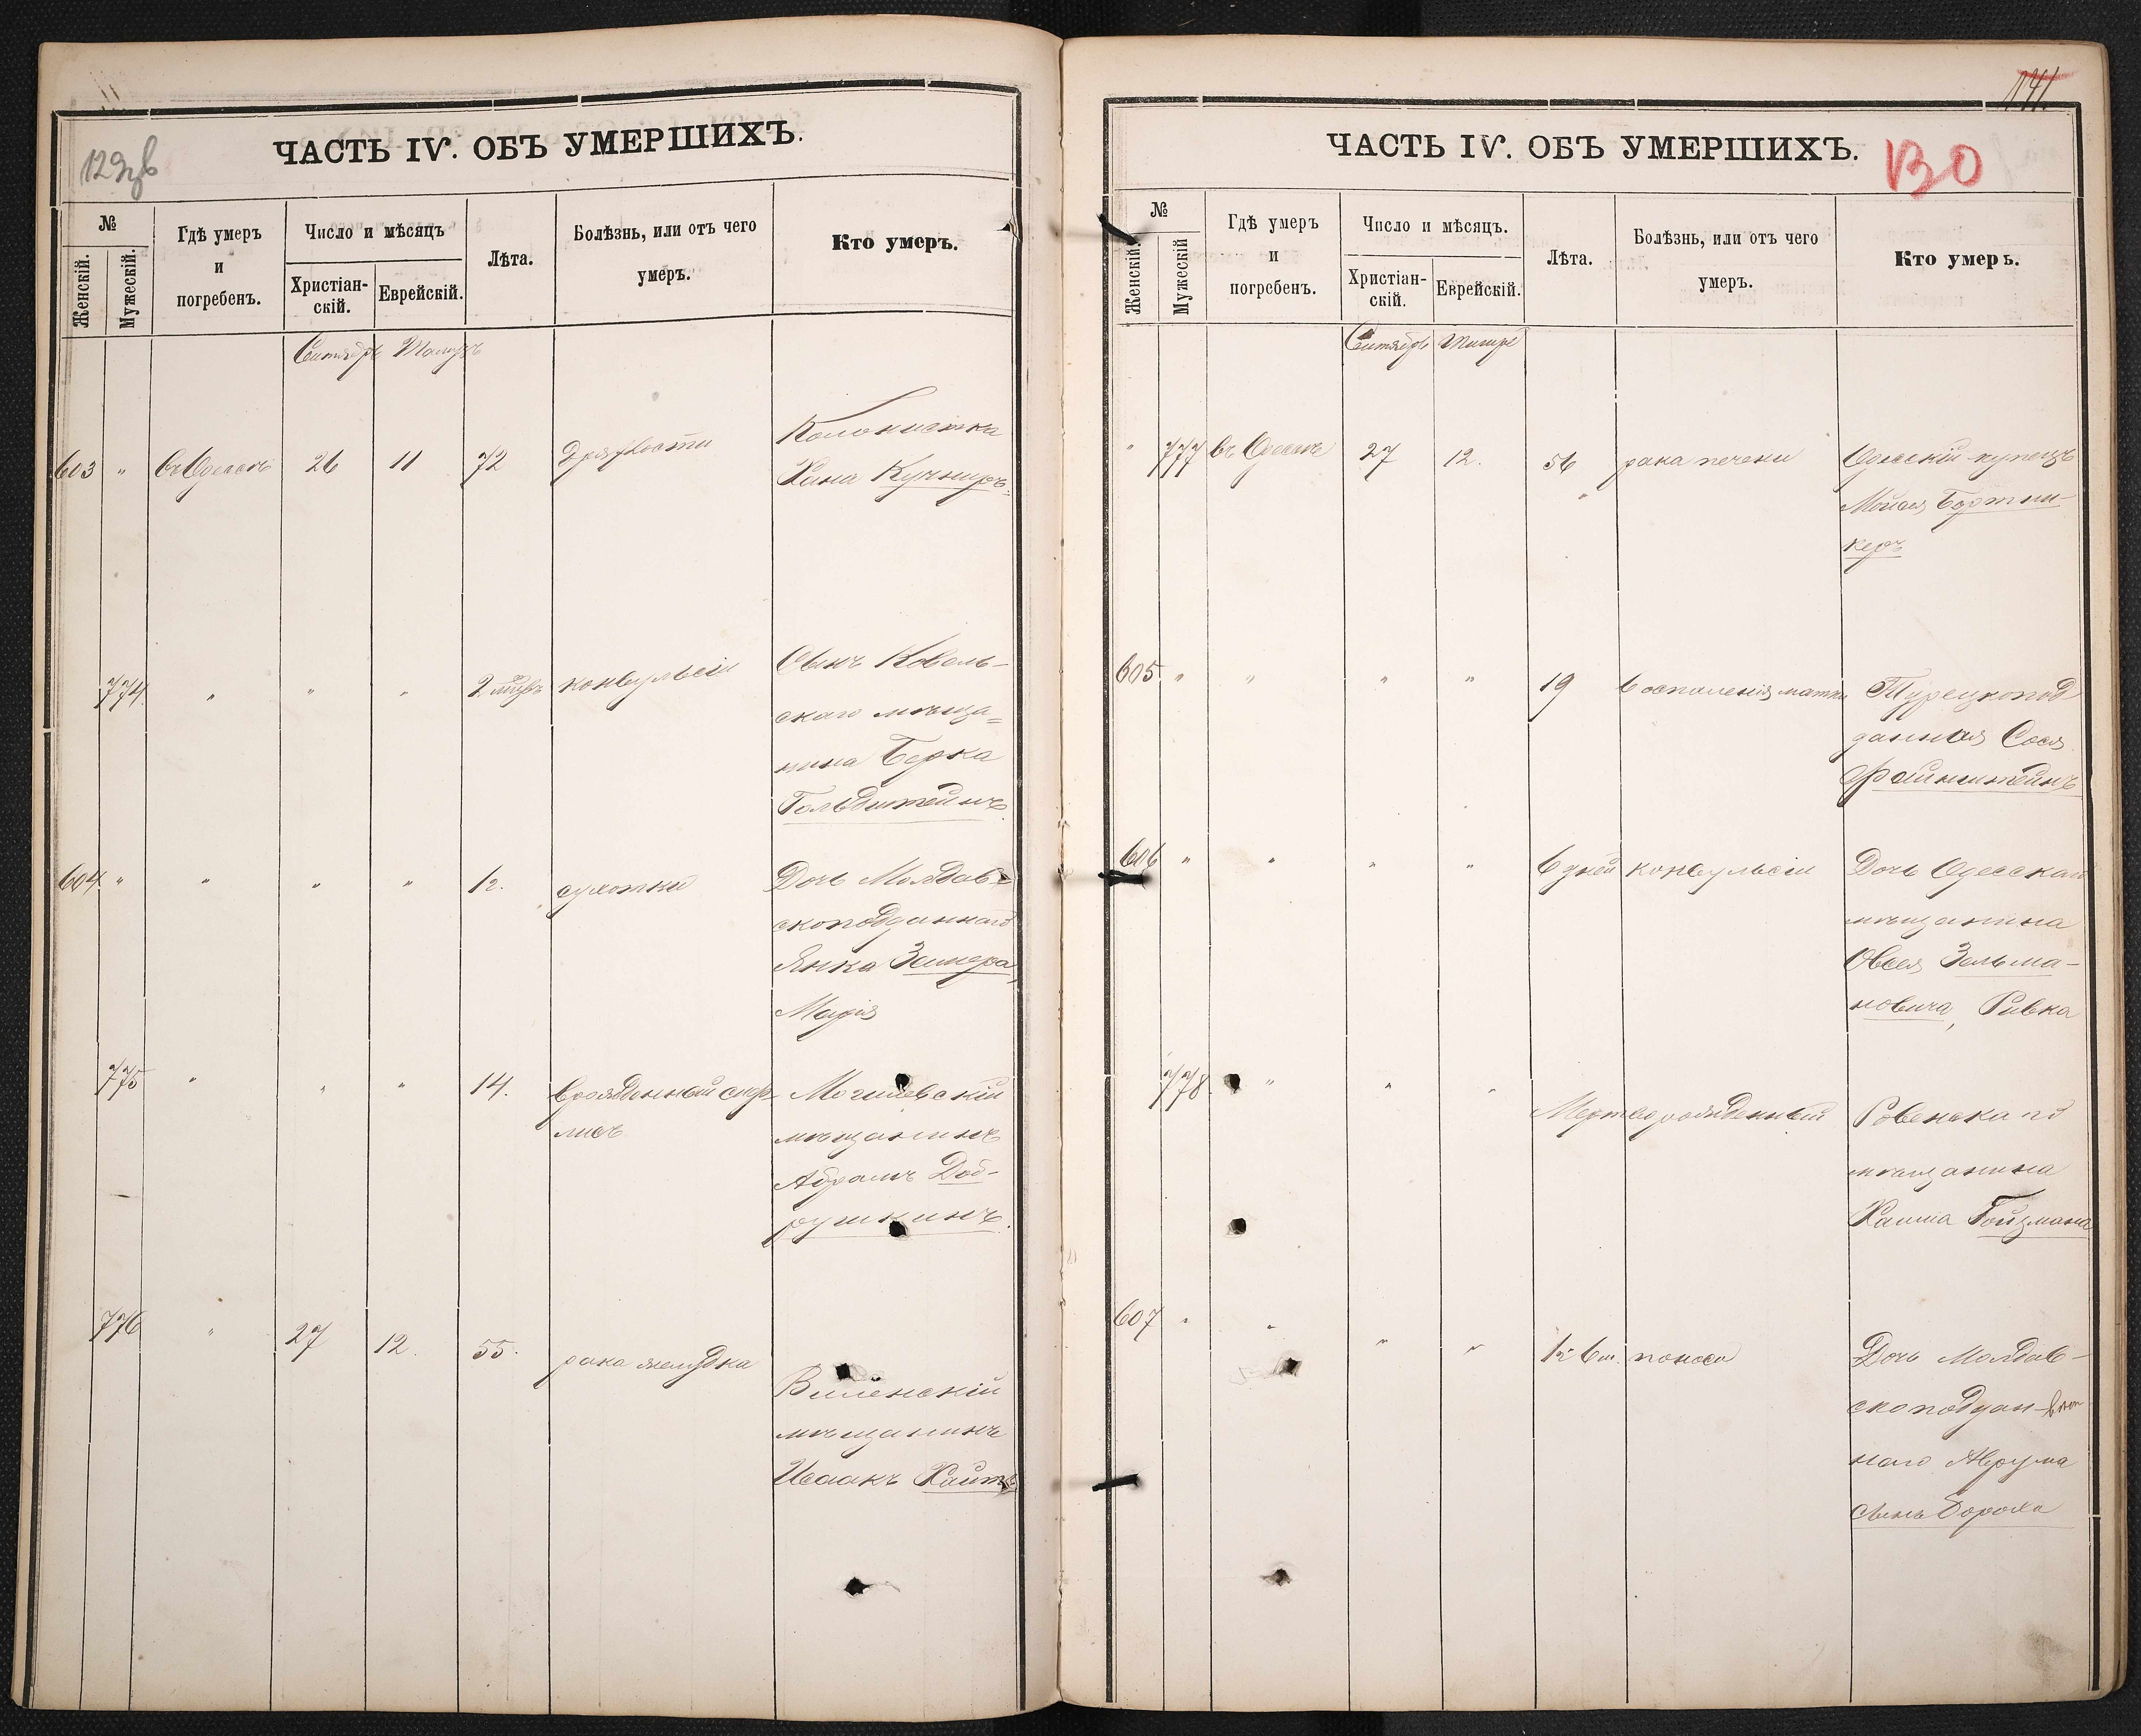 129зв
ЧАСТЬ IV. ОБЪ УМЕРШИХЪ.
№
Женскій.
Мужескій.
Гдѣ умеръ
и
погребенъ.
Число и мѣсяцъ
Христіан-
скій.
Еврейскій.
Лѣта.
Болѣзнь, или отъ чего
умеръ.
Кто умеръ.
Сентябрь
603 " въ Одессѣ 26 11 72 дряхлости Колонистка
Хана Кучниръ
774 " " " 2 конвульсіи Сынъ Коваль-
скаго мѣща-
нина Берка
Гольдштейнъ
604 " " " " 12. сухотки Дочь Молдав-
скоподданнаго
Янка Зеилера
Марія
775 " " " 14. врожденный сифи-
лисъ
Могилевскій
мѣщанинъ
Абрамъ Доб-
рушкинъ.
776 " 27 12. 55. рака желудка Виленскій
мѣщанинъ
Исаакъ Хаитъ
141.
ЧАСТЬ IV. ОБЪ УМЕРШИХЪ.
130
№
Женскій.
Мужескій
Гдѣ умеръ
и
погребенъ.
Число и мѣсяцъ.
Христіан-
скій.
Еврейскій.
Лѣта.
Болѣзнь, или отъ чего
умеръ.
Кто умеръ.
Сентябрь Тишре
" 777 въ Одессѣ 27 12. 56 рака печени Одесскій купецъ
Мойсей Бортни-
керъ
605 " " " " 19 воспаленія матки Турецкопод
данная Сося
Файнштейнъ
606 " " " " 6 дней конвульсіи Дочь Одесскаго
мѣщанина
Овсея Зельма-
новича, Ривка
778. " " " Мертворожденный Ровенскаго
мѣщанина
Хаима Гойзмана
607 " " " " поноса Дочь Молдав-
скоподдан-
наго Аврума
сынъ Бороха